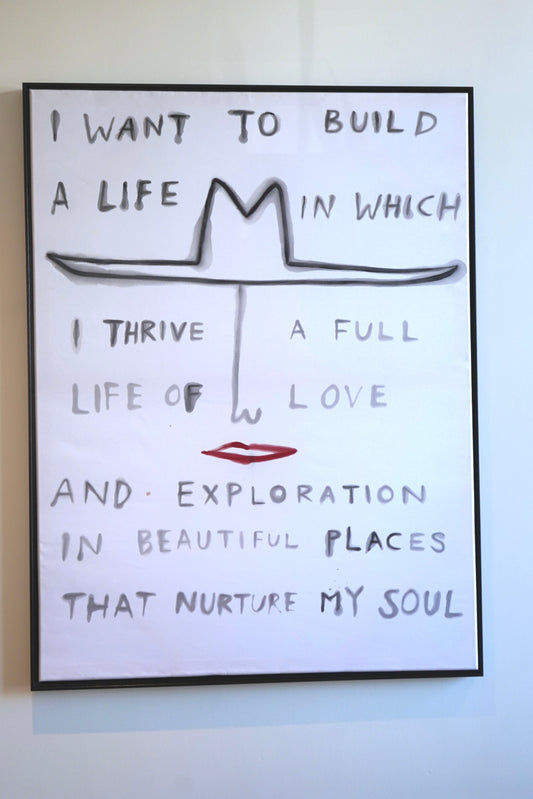 I WANT TO BUILD
A LIFE IN WHICH
I THRIVE A FULL
LIFE OF LOVE
AND EXPLORATION
IN BEAUTIFUL PLACES
THAT NURTURE MY SOUL